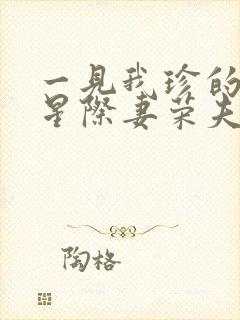 一見我珍的
星際妻荣夫
陶格